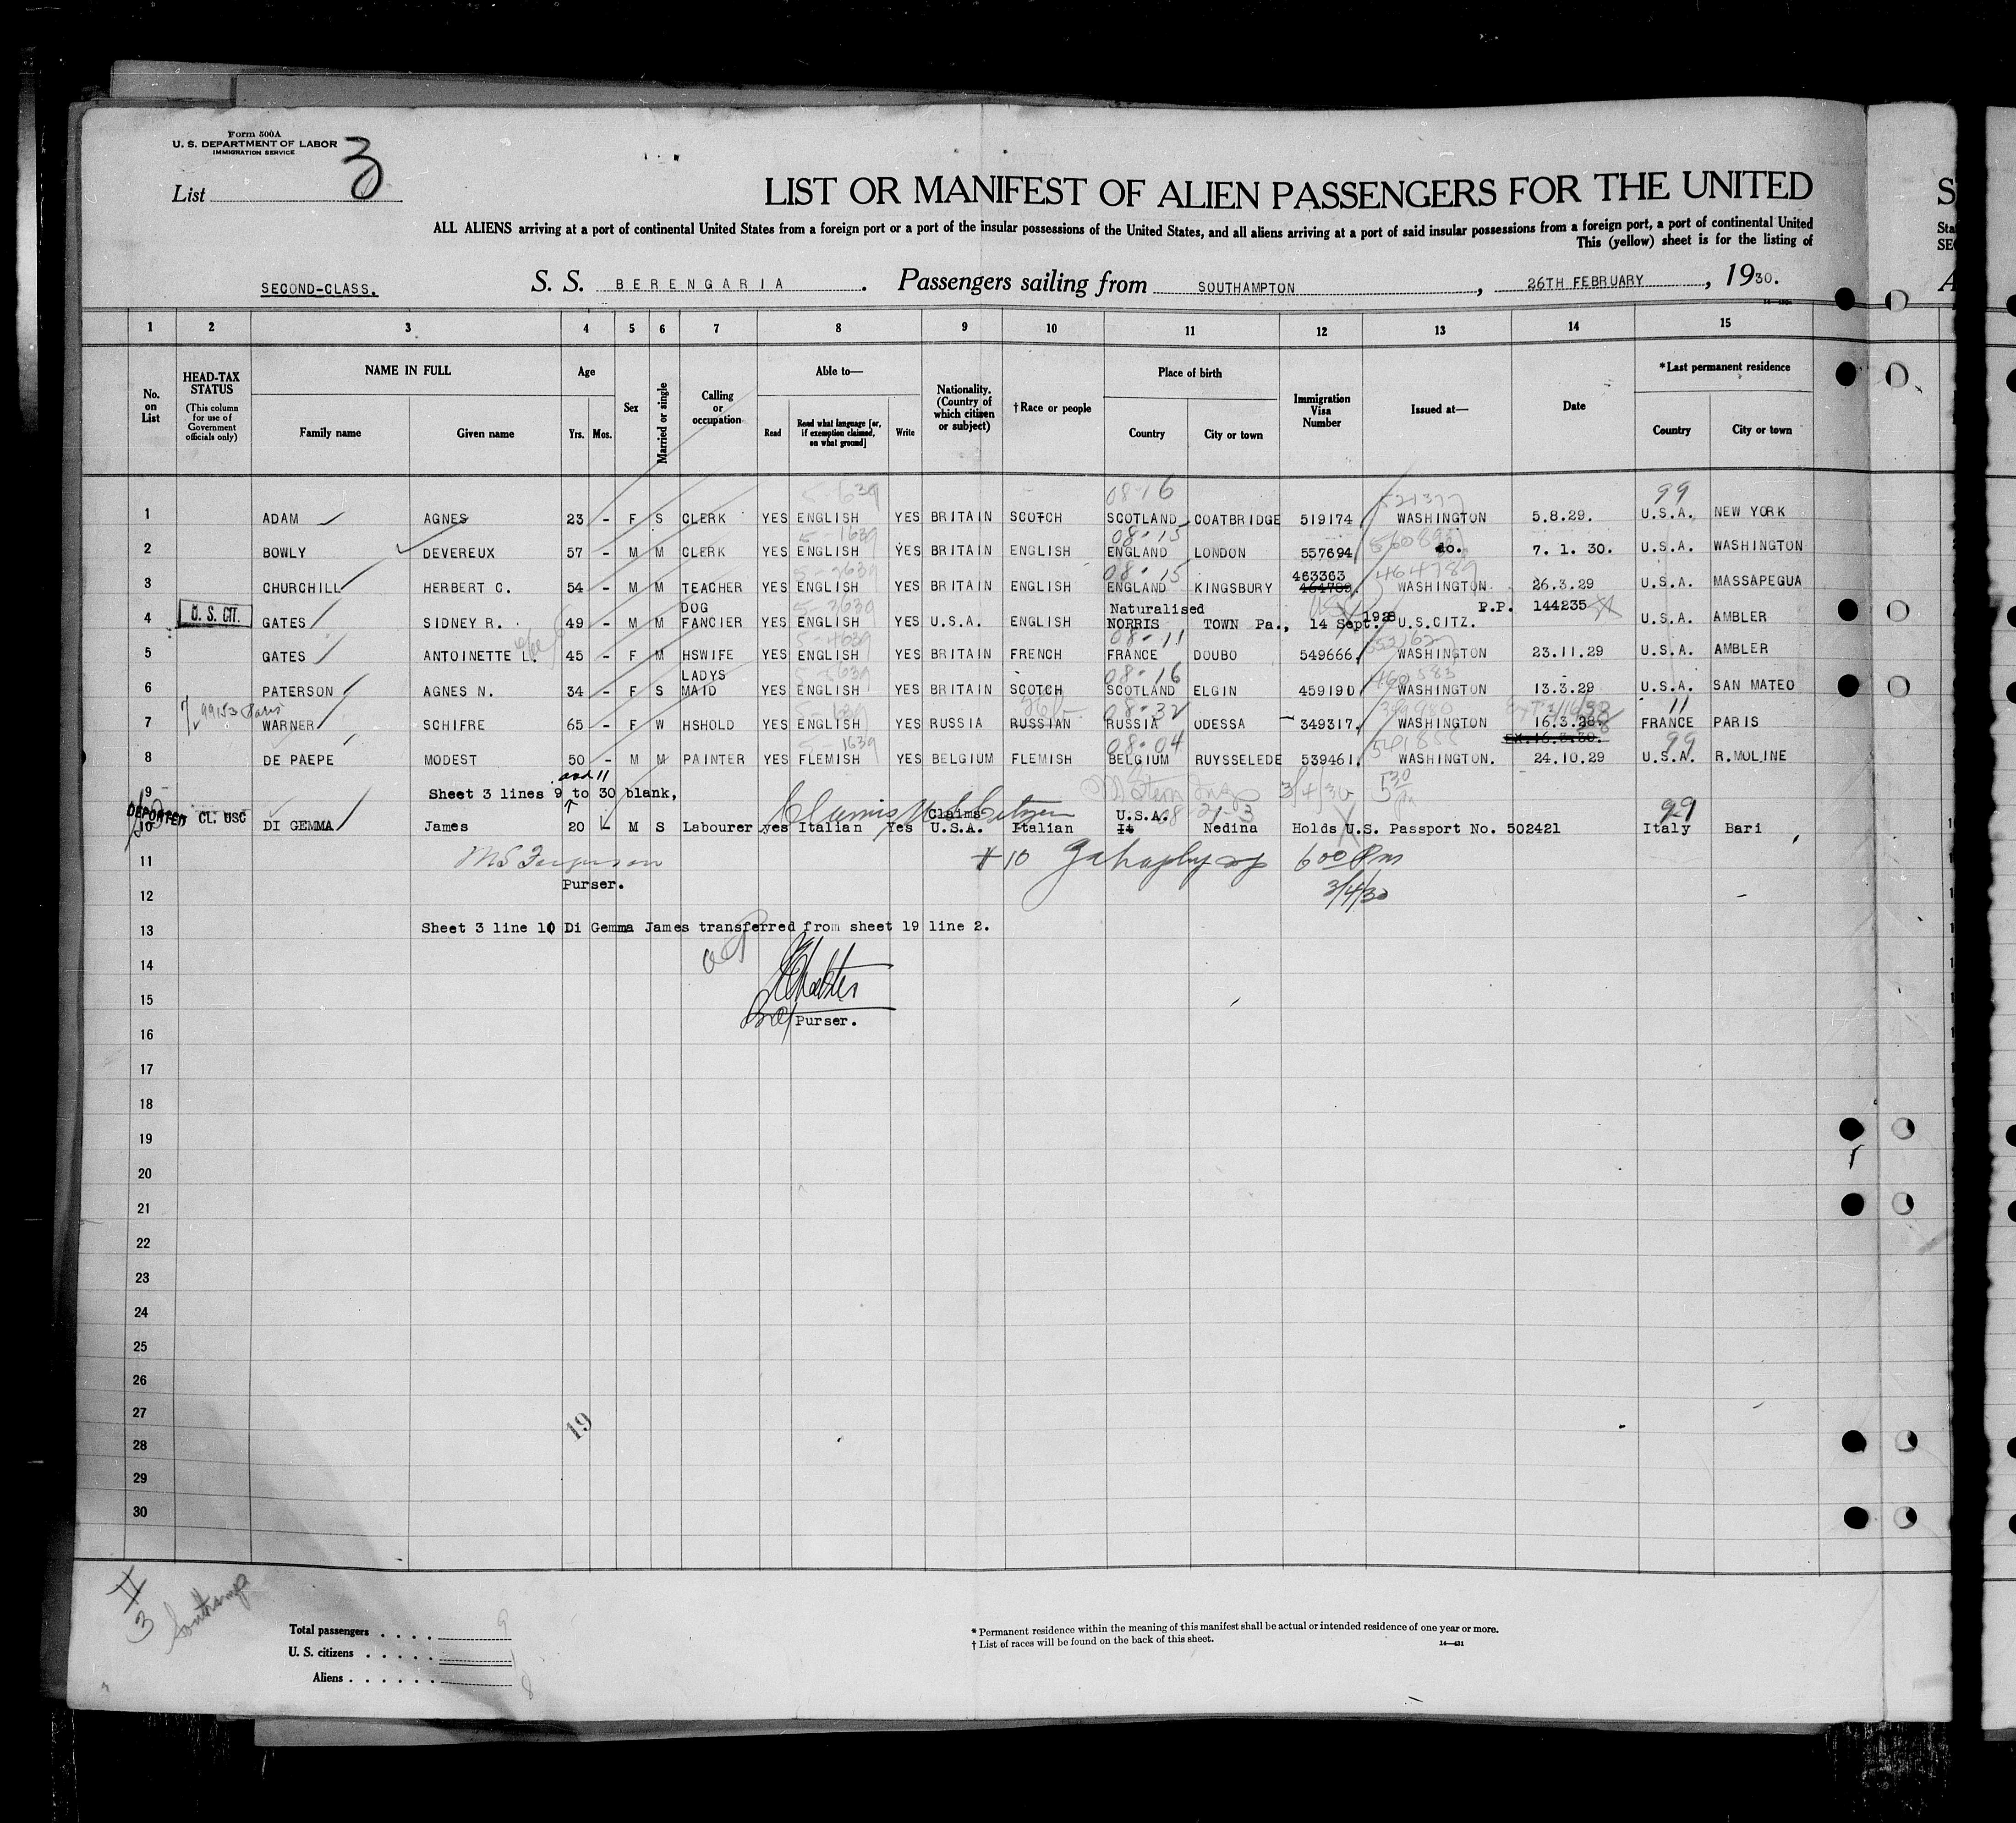 Form 500A
U. S. DEPARTMENT OF LABOR
IMMIGRATION SERVICE
List 3
LIST OR MANIFEST OF ALIEN PASSENGERS FOR THE UNITED
ALL ALIENS arriving at a port of continental United States from a foreign port or a port of the insular possessions of the United States, and all aliens arriving at a port of said insular possessions from a foreign port, a port of continental United
This (yellow) sheet is for the listing of
SECOND-CLASS. S. S. BERENGARIA. Passengers sailing from SOUTHAMPTON, 26TH FEBRUARY, 1930.
1 2 3 4 5 6 7 8 9 10 11 12 13 14 15
No. on List
HEAD-TAX STATUS (This column for use of Government officials only)
NAME IN FULL
Family name Given name
Age
Yrs. Mos.
Sex
Married or single
Calling or occupation
Able to—
Read Read what language [or, if exemption claimed, on what ground] Write
Nationality. (Country of which citizen or subject)
†Race or people
Place of birth
Country City or town
Immigration Visa Number
Issued at—
Date
*Last permanent residence
Country City or town
08-16 521377 99
1 ADAM AGNES 23 - F S CLERK YES ENGLISH YES BRITAIN SCOTCH SCOTLAND COATBRIDGE 519174 WASHINGTON 5.8.29. U.S.A. NEW YORK
5-1639 08-15
2 BOWLY DEVEREUX 57 - M M CLERK YES ENGLISH YES BRITAIN ENGLISH ENGLAND LONDON 557694 do. 7. 1. 30. U.S.A. WASHINGTON
08-15 463363 464789
3 CHURCHILL HERBERT C. 54 - M M TEACHER YES ENGLISH YES BRITAIN ENGLISH ENGLAND KINGSBURY 464789. WASHINGTON 26.3.29 U.S.A. MASSAPEGUA
DOG Naturalised 1928 P.P. 144235
4 U. S. CIT. GATES SIDNEY R. 49 - M M FANCIER YES ENGLISH YES U.S.A. ENGLISH NORRIS TOWN Pa., 14 Sept. U.S.CITZ. U.S.A. AMBLER
08-11
5 GATES ANTOINETTE L. 45 - F M HSWIFE YES ENGLISH YES BRITAIN FRENCH FRANCE DOUBO 549666 WASHINGTON 23.11.29 U.S.A. AMBLER
LADYS 08-16 460583
6 PATERSON AGNES N. 34 - F S MAID YES ENGLISH YES BRITAIN SCOTCH SCOTLAND ELGIN 459190 WASHINGTON 13.3.29 U.S.A. SAN MATEO
99153 Paris 08-32 11
7 WARNER SCHIFRE 65 - F W HSHOLD YES ENGLISH YES RUSSIA RUSSIAN RUSSIA ODESSA 349317. WASHINGTON 16.3.28. FRANCE PARIS
5-1639 08-04 541888 99
8 DE PAEPE MODEST 50 - M M PAINTER YES FLEMISH YES BELGIUM FLEMISH BELGIUM RUYSSELEDE 539461. WASHINGTON. 24.10.29 U.S.A. R.MOLINE
and 11
9 Sheet 3 lines 9 to 30 blank, 3/4/30 530
Claims U.S. Citizen
DEPORTED Claims U.S.A. 99
10 CL. USC DI GEMMA James 20 M S Labourer yes Italian Yes U.S.A. Italian It Nedina Holds U.S. Passport No. 502421 Italy Bari
11 #10 600 Pm
Purser.
12 3/4/30
13 Sheet 3 line 10 Di Gemma James transferred from sheet 19 line 2.
14
15
Purser.
16
17
18
19
20
21
22
23
24
25
26
27
19
28
29
30
# 3 Southamp
Total passengers 9
U. S. citizens 1
Aliens 8
* Permanent residence within the meaning of this manifest shall be actual or intended residence of one year or more.
† List of races will be found on the back of this sheet.
14—431